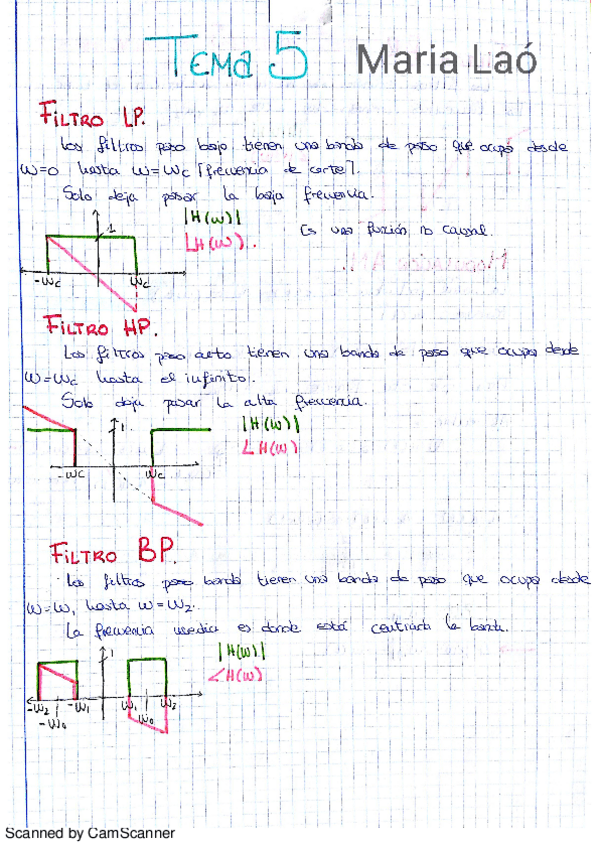 Tema 5 Maria Laó
FILTRO LP.
Los filtros paso bajo tienen una banda de paso que ocupa desde
ω=0 hasta ω=ωc [frecuencia de corte].
Solo deja pasar la baja frecuencia.
1
|H(ω)|
∠H(ω).
Es una función no causal.
-ωc ωc
FILTRO HP.
Los filtros paso alto tienen una banda de paso que ocupa desde
ω=ωc hasta el infinito.
Solo deja pasar la alta frecuencia.
1
|H(ω)|
∠H(ω)
-ωc ωc
FILTRO BP.
Los filtros paso banda tienen una banda de paso que ocupa desde
ω=ω₁ hasta ω=ω₂.
La frecuencia media es donde está centrada la banda.
1
|H(ω)|
∠H(ω)
-ω₂ -ω₁ ω₁ ω₂
-ω₀ ω₀
Scanned by CamScanner